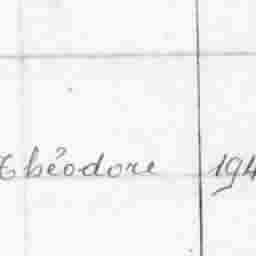 Théodore 194